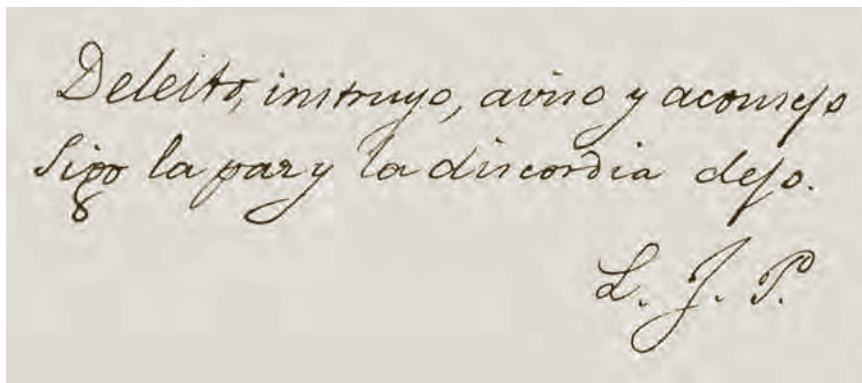 Deleito, instruyo, aviso y aconsejo
Sigo la paz y la discordia dejo.
L. J. P.